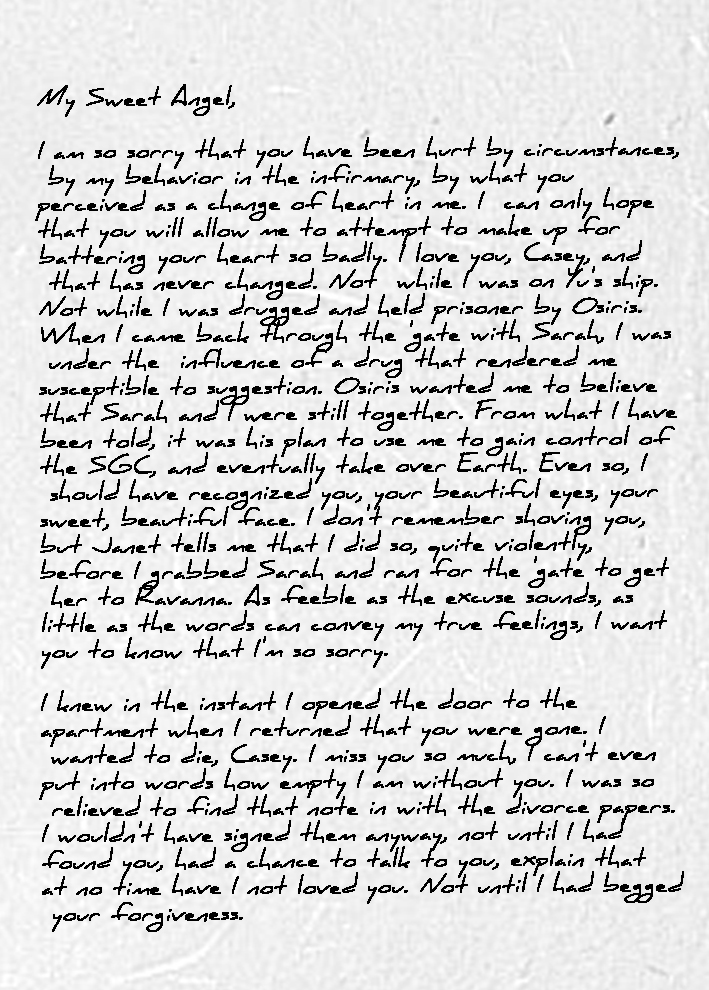 My Sweet Angel,
I am so sorry that you have been hurt by circumstances,
by my behavior in the infirmary, by what you
perceived as a change of heart in me. I can only hope
that you will allow me to attempt to make up for
battering your heart so badly. I love you, Casey, and
that has never changed. Not while I was on Yu's ship.
Not while I was drugged and held prisoner by Osiris.
When I came back through the 'gate with Sarah, I was
under the influence of a drug that rendered me
susceptible to suggestion. Osiris wanted me to believe
that Sarah and I were still together. From what I have
been told, it was his plan to use me to gain control of
the SGC, and eventually take over Earth. Even so, I
should have recognized you, your beautiful eyes, your
sweet, beautiful face. I don't remember shoving you,
but Janet tells me that I did so, quite violently,
before I grabbed Sarah and ran for the 'gate to get
her to Ravanna. As feeble as the excuse sounds, as
little as the words can convey my true feelings, I want
you to know that I'm so sorry.
I knew in the instant I opened the door to the
apartment when I returned that you were gone. I
wanted to die, Casey. I miss you so much, I can't even
put into words how empty I am without you. I was so
relieved to find that note in with the divorce papers.
I wouldn't have signed them anyway, not until I had
found you, had a chance to talk to you, explain that
at no time have I not loved you. Not until I had begged
your forgiveness.